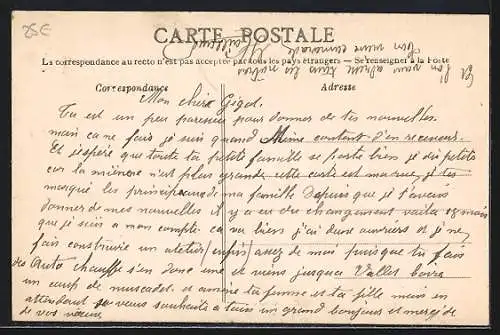 25E
CARTE POSTALE
La correspondance au recto n'est pas acceptée par tous les pays étrangers — Se renseigner à la Poste
Correspondance
Adresse
Mon cher Gigot.
Tu est un peu paresseu pour donner de tes nouvelles
mais ca ne fais je suis quand Même content d'en recevoir.
Et j'espére que toute ta petite famille se porte bien je dis petite
car la mienne n'est plus grande cette carte est
marqué les ma famille Depuis que je t'avais
donner de mes nouvelles il y a eu du changement voila 18 mois
que je suis a mon compte ca va bien j'ai deux ouvriers et je
fais construire un atelier enfin assez de mois puisque tu fais
des Auto chauffe s'en donc une et viens jusqua Vallet boire
un coup de muscadet et amène ta femme et ta fille mais en
attendant je vous souhaite à tous un grand bonjour et merci de
de vos
Et bon
Ton vieux camarade